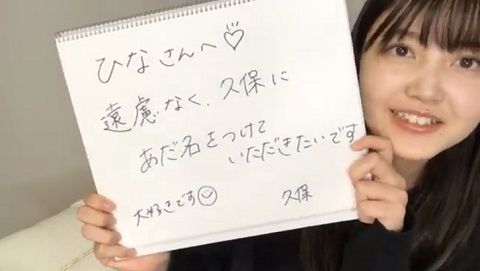 ひなさんへ♡
遠慮なく、久保に
あだ名をつけて
いただきたいです
大好きです☺
久保